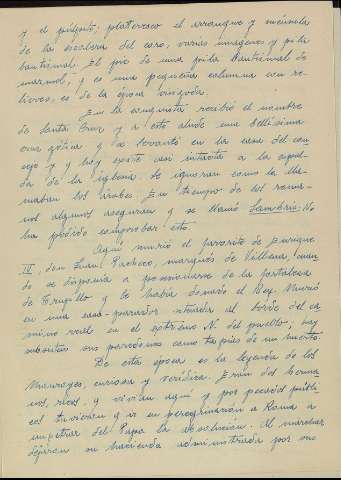 y el púlpito; plateresco el arranque y ménsula
de las escalera del coro, varias imágenes y pila
bautismal. El pie de una pila bautismal de
marmol, y es una pequeña columna con re-
lieves, es de la época visigoda.
En la conquista recibió el nombre
de Santa Cruz y a esto alude una bellísima
cruz gótica q se levantó en las casa del con
cejo y q hoy existe casi intacta a la espal
da de la iglesia. Se ignoran como la lla-
maban los árabes. En tiempo de los roma-
nos algunos aseguran q se llamó No
ha podido comprobar esto.
Aquí murió el favorito de Enrique
IV, don Juan Pacheco, marqués de Villena, cuan
do se disponía a posesionarse de la fortaleza
de Trujillo q le había donado el Rey. Murió
en una casa-parador situada al borde del ca
mino real en el extremo N. del pueblo; hoy
subsiten sus paredones como tapies de un huerto.
De esta época es la leyenda de los
Maurayos, curiosa y verídica. Eran dos herma
nos, ricos, q vivían aquí y por pecados públi-
cos tuvieron q ir en peregrinación a Roma a
impetrar del Papa la absolución. Al marchar
dejaron su hacienda administrada por sus